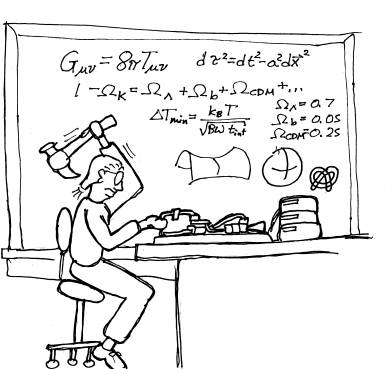 Gμν = 8πTμν
dτ²=dt²-a²dx⃗²
1-Ωκ=ΩΛ+Ωb+ΩCDM+...
ΔTmin = kBT/√Bω tint
ΩΛ=0.7
Ωb=0.05
ΩCDM=0.25